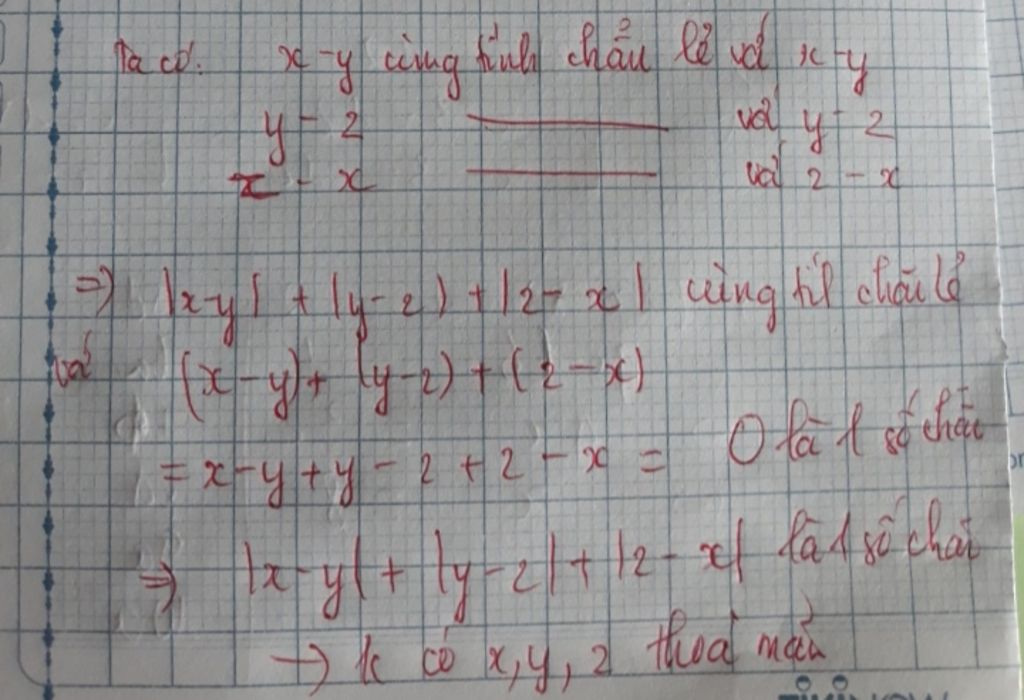 Ta có: x-y cùng tính chẵn lẻ với x-y
y-z ——— với y-z
z-x ——— với z-x
=> |x-y| + |y-z| + |z-x| cùng tính chẵn lẻ
với (x-y) + (y-z) + (z-x)
= x-y+y-z+z-x = 0 là 1 số chẵn
=> |x-y| + |y-z| + |z-x| là 1 số chẵn
-> k có x,y,z thoả mãn